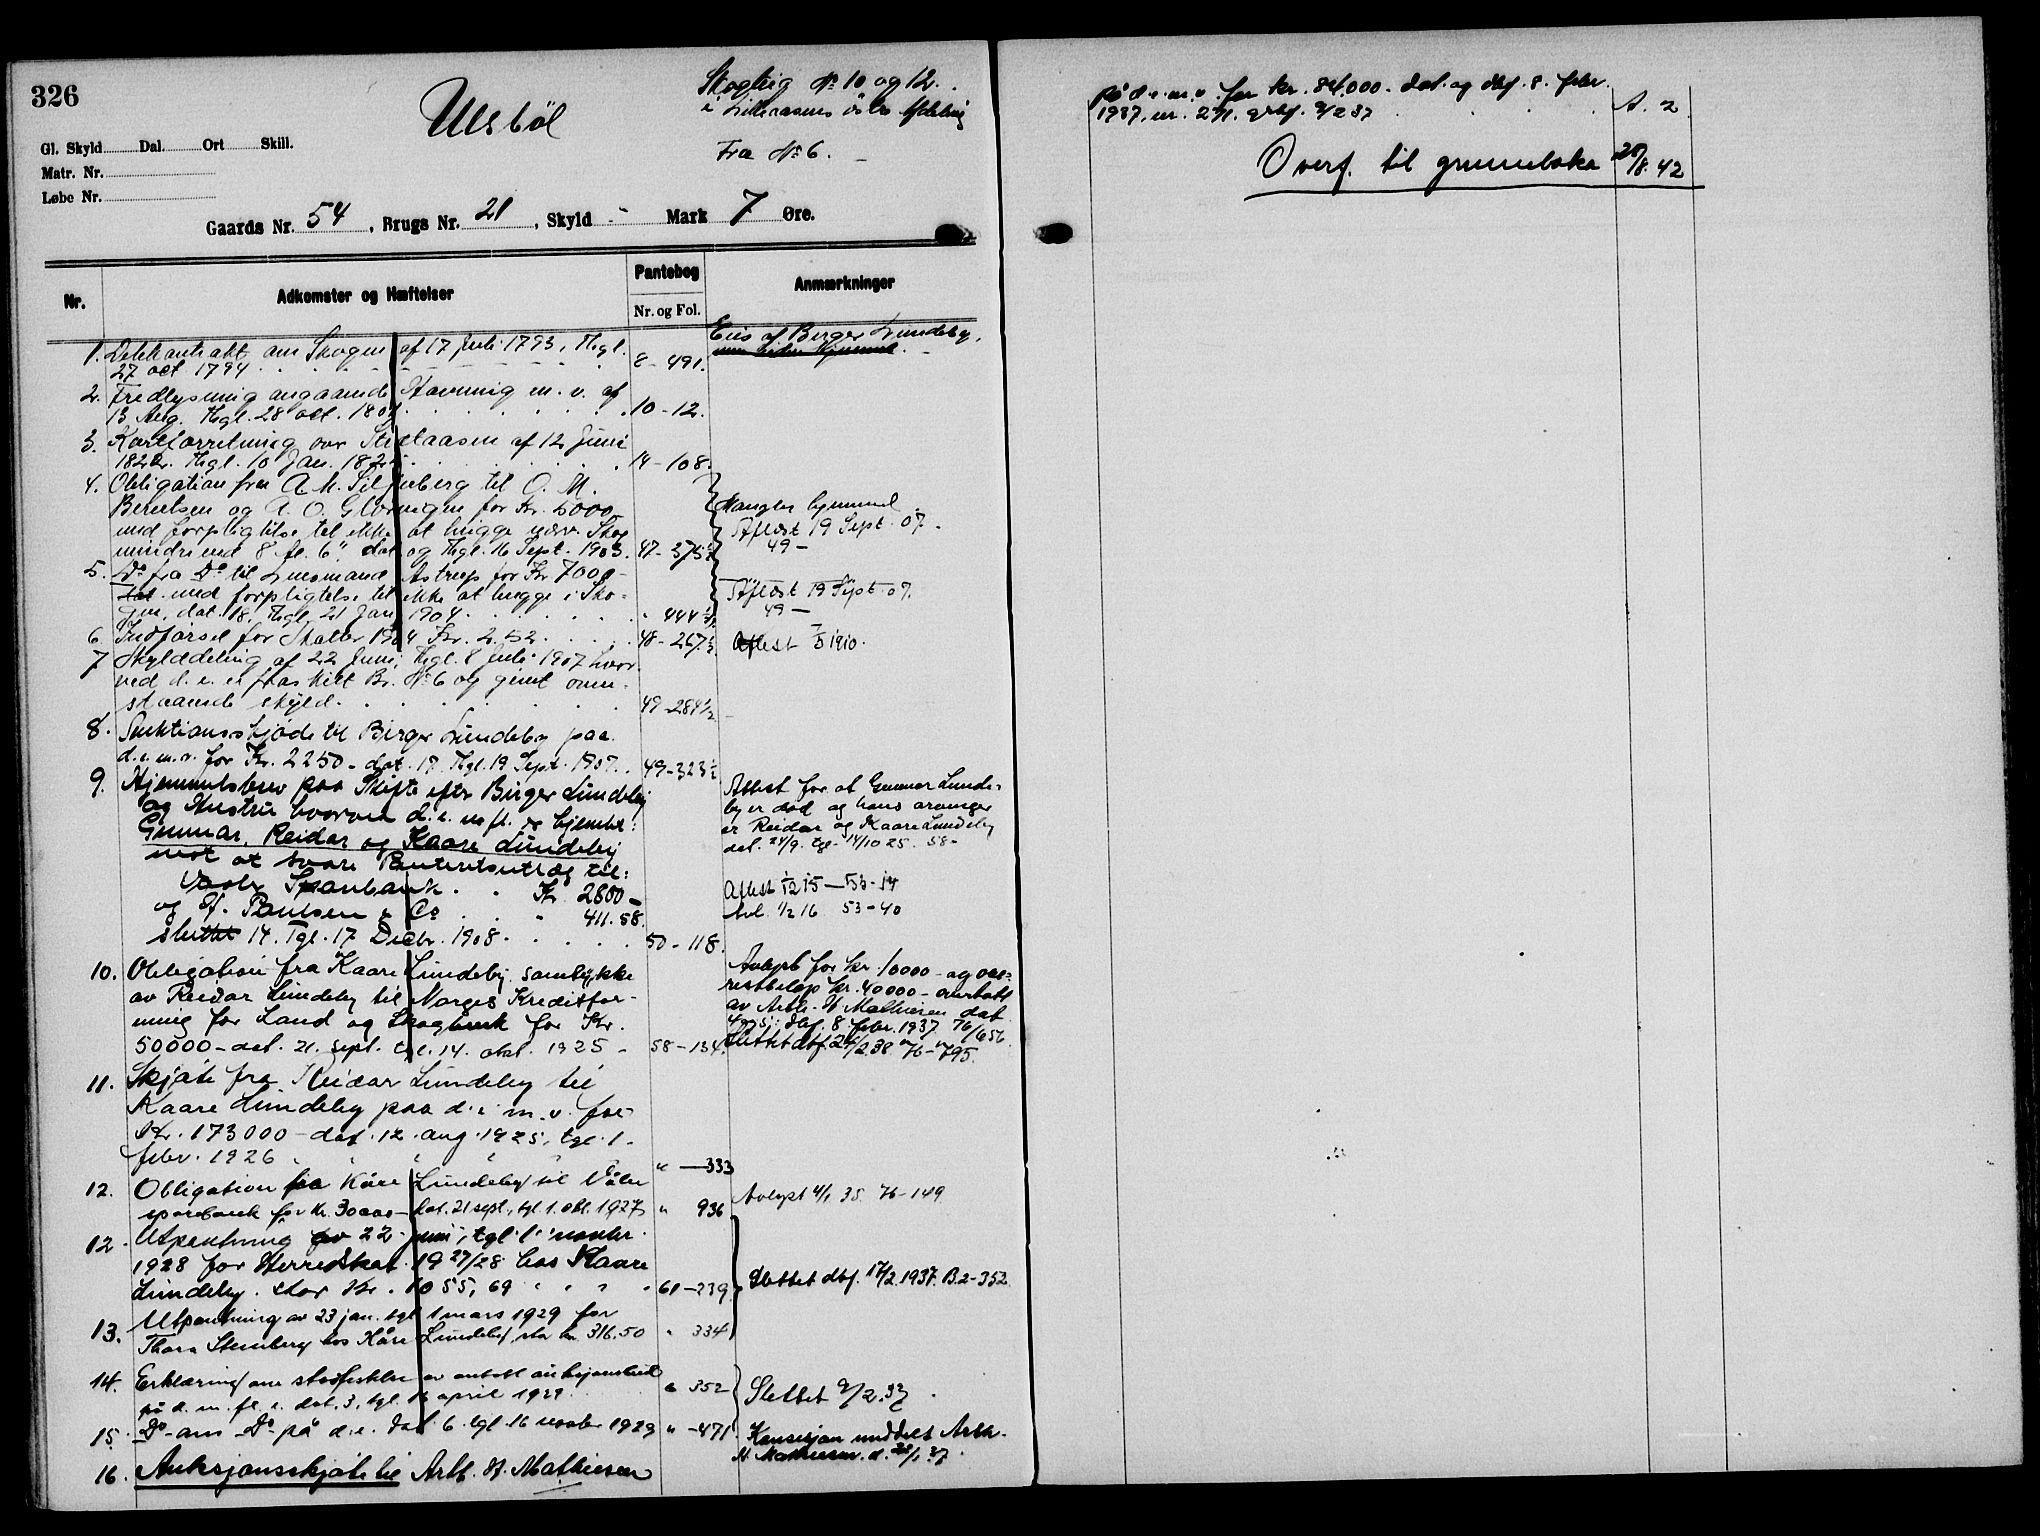 326
Ulsbøl
Skogteig № 10 og 12.
i Lilleaasens østre Afdeling
Fra № 6.
Gl. Skyld Dal. Ort Skill.
Matr. Nr.
Løbe Nr.
Gaards Nr. 54, Brugs Nr. 21, Skyld - Mark 7 Øre.
Nr. Adkomster og Hæftelser Pantebog Anmærkninger
Nr. og Fol.
Eies af Birger Lundeby,
1. Delekontrakt om Skogen af 17 Juli 1793, Thgl.
27 oct 1794 8-491.
2. Fredlysning angaaende Havning m. v. af
13 Aug. Thgl. 28 oct. 1807 10-12.
3. Kartforretning over aasen af 12 Juni
182. Thgl. 10 Jan. 182 14-108.
4. Obligation fra A. M. berg til O. M.
Berntsen og A. O. for Kr. 5000
med forpligtelse til ikke at hugge Skog
mindre end 8 fl. 6" dat og Thgl. 16 Sept. 1903. 47-375½
Mangler hjemmel
Aflæst 19 Sept. 07.
49-
5. Do fra Do til Lensmand Astrup for Kr 7000-
med forpligtelse til ikke at hugge i Sko-
gen, dat. 18, Thgl. 21 Jan 1904 " 444½
Aflæst 19 Sept. 07.
49-
6. Indførsel for Skatter 1904 Kr. 2.52 48-267½ Aflæst 1910.
7 Skylddeling af 22 Juni, Thgl. 8 Juli 1907 hvor
ved d. e. er fraskilt Br. № 6 og givet oven-
staaende skyld 49-284½
8. Auktionsskjøde til Birger Lundeby paa
d. e. m. v. for Kr. 2250- dat. 17. Thgl. 19 Sept. 1907. 49-323½
9. Hjemmelsbrev paa Skifte efter Birger Lundeby
og Hustru hvorved d. e. m. fl. er hjemlet:
Gunnar, Reidar og Kaare Lundeby
mot at svare Panteretsutlæg til:
Vaaler Sparebank Kr 2800-
og H. Paulsen & Co " 411.58.
sluttet 14. Tgl. 17 Decbr. 1908. 50-118.
Attest for at Gunnar Lunde-
by er død og hans arvinger
er Reidar og Kaare Lundeby
dat. 24/9. tgl. 14/10 25. 58-
Aflæst 1/12 15-53-14
Avl. 1/2 16 53-40
10. Obligation fra Kaare Lundeby samtykke
av Reidar Lundeby til Norges Kreditfor-
ening for Land og Skogbruk for Kr.
50000- dat. 21. sept. tgl. 14. okt. 1925 - 58-134.
Avlyst for kr. 10000- og
restbeløp kr. 40000- overtatt
av Arth. H. Mathiesen dat
dbf. 8 febr. 1937. 76/656
Slettet dbf. 2/238 76-795.
11. Skjøte fra Reidar Lundeby til
Kaare Lundeby paa d. e. m. v. for
Kr. 173000- dat. 12. aug. 1925, tgl. 1.
febr. 1926 " -333
12. Obligation fra Kåre Lundeby til Våler
sparebank for kr. 30000- dat. 21 sept., tgl 1. okt. 1927 " 936 Avlyst 4/1 35 76-149
12. Utpantning av 22. juni, tgl. 1. novbr.
1928 for Herredskat 1927/28 hos Kaare
Lundeby. stor Kr. 1055,69 61-239
Slettet dbf. 17/2 1937. B.2-352
13. Utpantning av 23 jan. tgl 1 mars 1929 for
Thora Stenberg hos Kåre Lundeby stor kr. 316.50 " 334
14. Erklæring om stadfestelse av avholdt auksjonsbud
på d. m. fl. e. dat. 3, tgl. 16 april 1929. " 352 Slettet 9/2.37.
15. Do om Do på d. e. dat. 6. tgl. 16 novbr. 1929 " -471
Konsesjon meddelt Arth.
H. Mathiesen. d. 28/1.37.
16. Auksjonsskjøte til Arth. H. Mathiesen
på d. e. m. v. for kr. 84.000- dat. og dbf. 8. febr.
1937, nr. 271. 9/2 37 A. 2
Overf. til grunnboka 25/8. 42